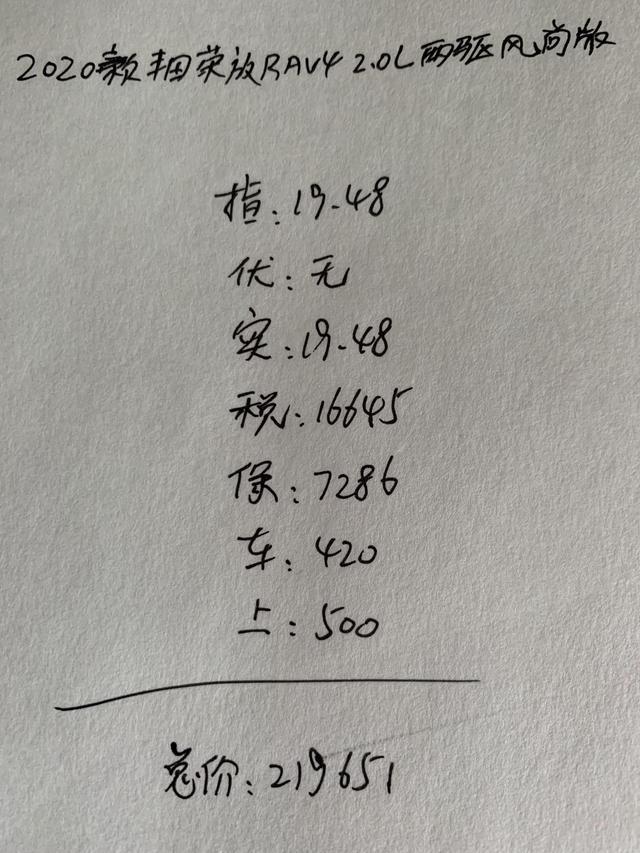 2020款丰田荣放RAV4 2.0L两驱风尚版
指:19.48
优:无
实:19.48
税:16645
保:7286
车:420
上:500
总价:219651